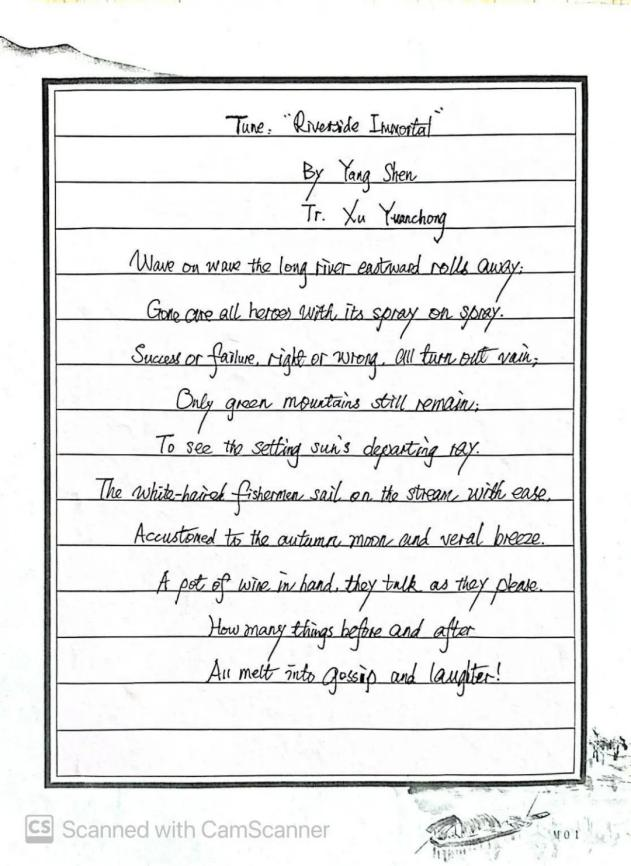 Tune: "Riverside Immortal"
By Yang Shen
Tr. Xu Yuanchong
Wave on wave the long river eastward rolls away;
Gone are all heroes with its spray on spray.
Success or failure, right or wrong, all turn out vain;
Only green mountains still remain;
To see the setting sun's departing ray.
The white-haired fishermen sail on the stream with ease,
Accustomed to the autumn moon and veral breeze.
A pot of wine in hand, they talk as they please.
How many things before and after
All melt into gossip and laughter!
CS Scanned with CamScanner